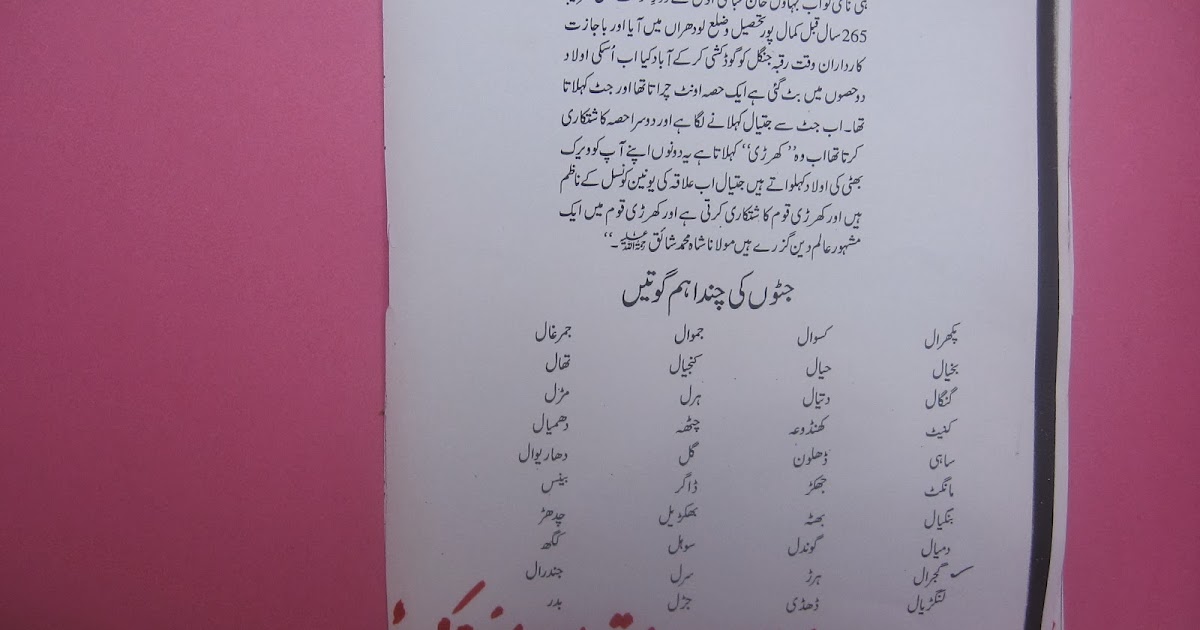 265 سال قبل کمال پور تحصیل و ضلع لودھراں میں آیا اور باجازت
کارداران وقت رقبہ جنگل کو گوڈ کشی کر کے آباد کیا اب اُسکی اولاد
دو حصوں میں بٹ گئی ہے ایک حصہ اونٹ چراتا تھا اور جٹ کہلاتا
تھا۔ اب جٹ سے جتیال کہلانے لگا ہے اور دوسرا حصہ کاشتکاری
کرتا تھا اب وہ ”کھرڑی“ کہلاتا ہے یہ دونوں اپنے آپ کو ویرک
بھٹی کی اولاد کہلواتے ہیں جتیال اب علاقہ کی یونین کونسل کے ناظم
ہیں اور کھرڑی قوم کاشتکاری کرتی ہے اور کھرڑی قوم میں ایک
مشہور عالم دین گزرے ہیں مولانا شاہ محمد شائق رحمۃ اللہ علیہ۔“
جٹوں کی چند اہم گوتیں
پکھرال کسوال جموال جمرغال
بخیال حیال کنجیال تھال
گنگال دتیال ہرل مڑل
کنیٹ کھنڈوعہ چٹھہ دھمیال
ساہی ڈھلون گل دھاریوال
مانگٹ جھکڑ ڈاگر بینس
بنگیال بھٹہ بھکڑیل چدھڑ
دمیال گوندل سوہل گگھ
گجرال ہرڑ سرل جندرال
لنگڑیال ڈھڈی جڑل بدر